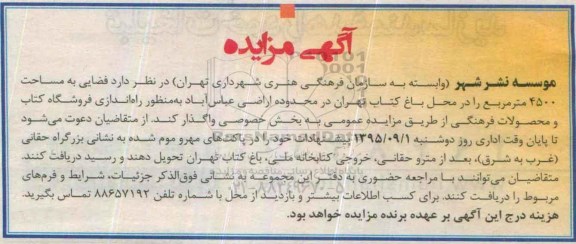 آگهی مزایده
موسسه نشر شهر (وابسته به سازمان فرهنگی هنری شهرداری تهران) در نظر دارد فضایی به مساحت
۴۵۰۰ مترمربع را در محل باغ کتاب تهران در محدوده اراضی عباس‌آباد به‌منظور راه‌اندازی فروشگاه کتاب
و محصولات فرهنگی از طریق مزایده عمومی به بخش خصوصی واگذار کند. از متقاضیان دعوت می‌شود
تا پایان وقت اداری روز دوشنبه ۱۳۹۵/۰۹/۱ پیشنهادات خود را در پاکت‌های مهرو موم شده به نشانی بزرگراه حقانی
(غرب به شرق)، بعد از مترو حقانی، خروجی کتابخانه ملی، باغ کتاب تهران تحویل دهند و رسید دریافت کنند.
متقاضیان می‌توانند با مراجعه حضوری به دفتر این مجموعه به نشانی فوق‌الذکر جزئیات، شرایط و فرم‌های
مربوط را دریافت کنند. برای کسب اطلاعات بیشتر و بازدید از محل با شماره تلفن ۸۸۶۵۷۱۹۲ تماس بگیرید.
هزینه درج این آگهی بر عهده برنده مزایده خواهد بود.